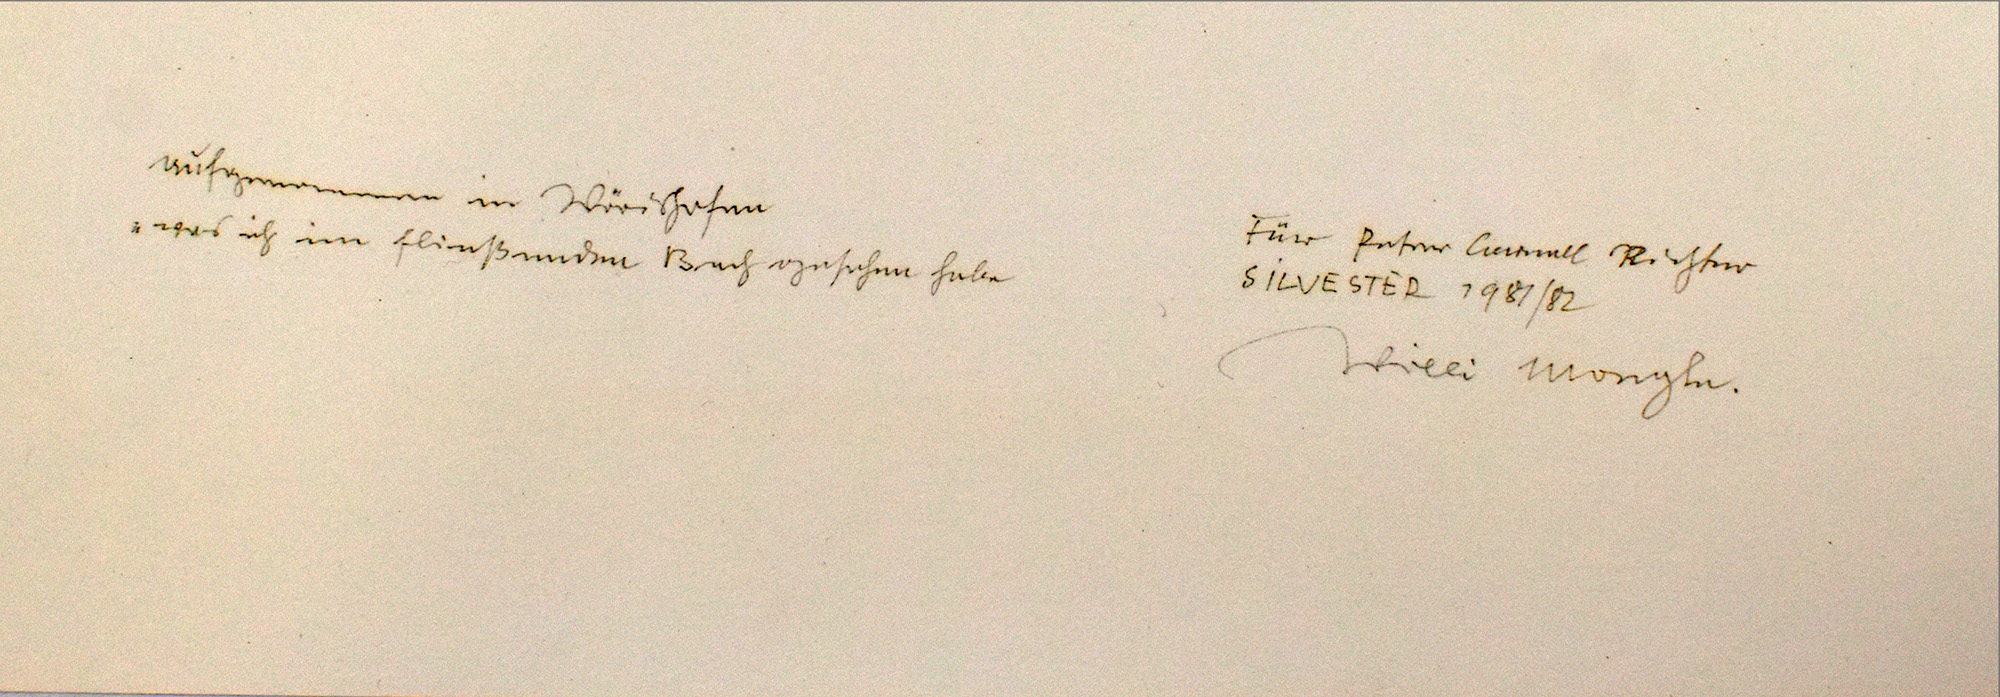 aufgenommen in Wörishofen
"was ich im fließenden Bach gesehen habe
Für Peter Cornell Richter
SILVESTER 1981/82
Willi Moegle.